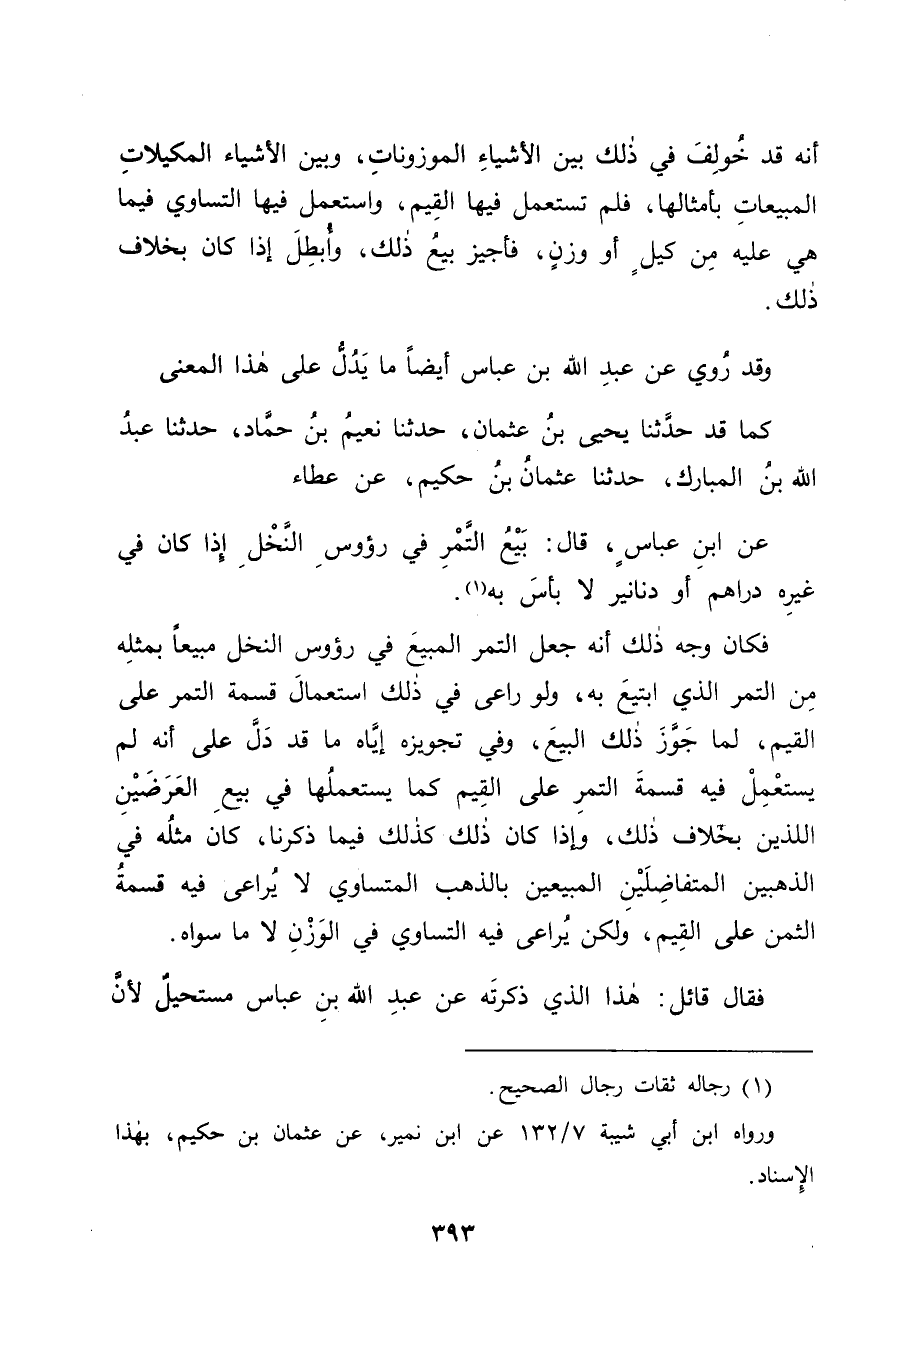 أنه قد خُولِفَ في ذٰلك بين الأشياءِ الموزوناتِ، وبين الأشياء المكيلاتِ
المبيعاتِ بأمثالها، فلم تستعمل فيها القِيم، واستعمل فيها التساوي فيما
هي عليه مِن كيلٍ أو وزنٍ، فأجيز بيعُ ذٰلك، وأُبطِلَ إذا كان بخلاف
ذٰلك.
وقد رُوي عن عبدِ الله بن عباس أيضاً ما يَدُلُّ على هٰذا المعنى
كما قد حدَّثنا يحيى بنُ عثمان، حدثنا نعيمُ بنُ حمَّاد، حدثنا عبدُ
الله بنُ المبارك، حدثنا عثمانُ بنُ حكيم، عن عطاء
عن ابنِ عباسٍ، قال: بَيْعُ التَّمْرِ في رؤوسِ النَّخْلِ إذا كان في
غيرِه دراهم أو دنانير لا بأسَ به(١).
فكان وجه ذٰلك أنه جعل التمر المبيعَ في رؤوس النخل مبيعاً بمثلِه
مِن التمر الذي ابتيعَ به، ولو راعى في ذٰلك استعمالَ قسمة التمر على
القيم، لما جَوَّزَ ذٰلك البيعَ، وفي تجويزه إيَّاه ما قد دَلَّ على أنه لم
يستعْمِلْ فيه قسمةَ التمرِ على القِيم كما يستعملُها في بيعِ العَرَضَيْنِ
اللذين بخلاف ذٰلك، وإذا كان ذٰلك كذٰلك فيما ذكرنا، كان مثلُه في
الذهبين المتفاضِلَيْنِ المبيعين بالذهب المتساوي لا يُراعى فيه قسمةُ
الثمن على القِيم، ولكن يُراعى فيه التساوي في الوَزْنِ لا ما سواه.
فقال قائل: هٰذا الذي ذكرتَه عن عبدِ الله بنِ عباس مستحيلٌ لأنَّ
(١) رجاله ثقات رجال الصحيح.
ورواه ابن أبي شيبة ١٣٢/٧ عن ابن نمير، عن عثمان بن حكيم، بهٰذا
الإسناد.
٣٩٣